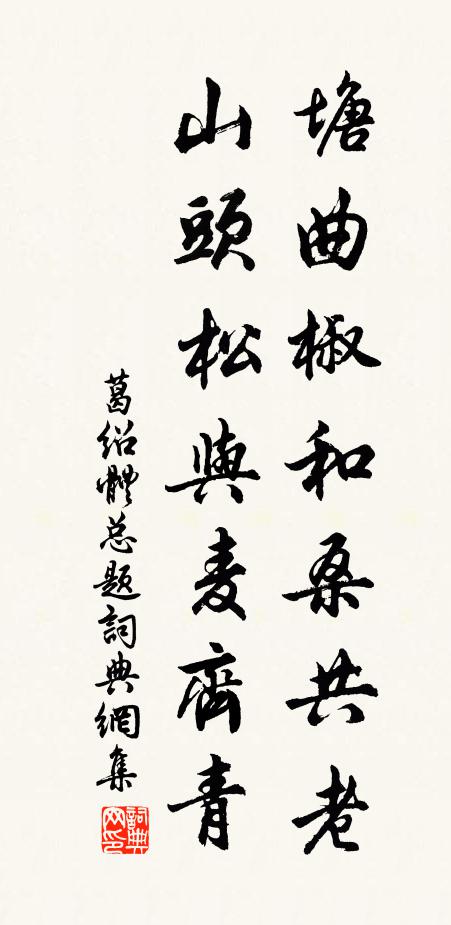 塘曲椒和桑共老
山頭松與麦齊青
葛绍體总题詞典網集
詞典网印